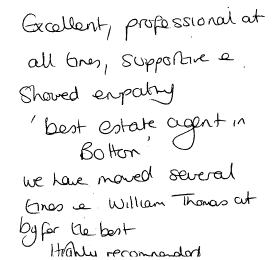 Excellent, professional at
all times, supportive &
Showed empathy
'best estate agent in
Bolton'
we have moved several
times & William Thomas at
by far the best
Highly recommended